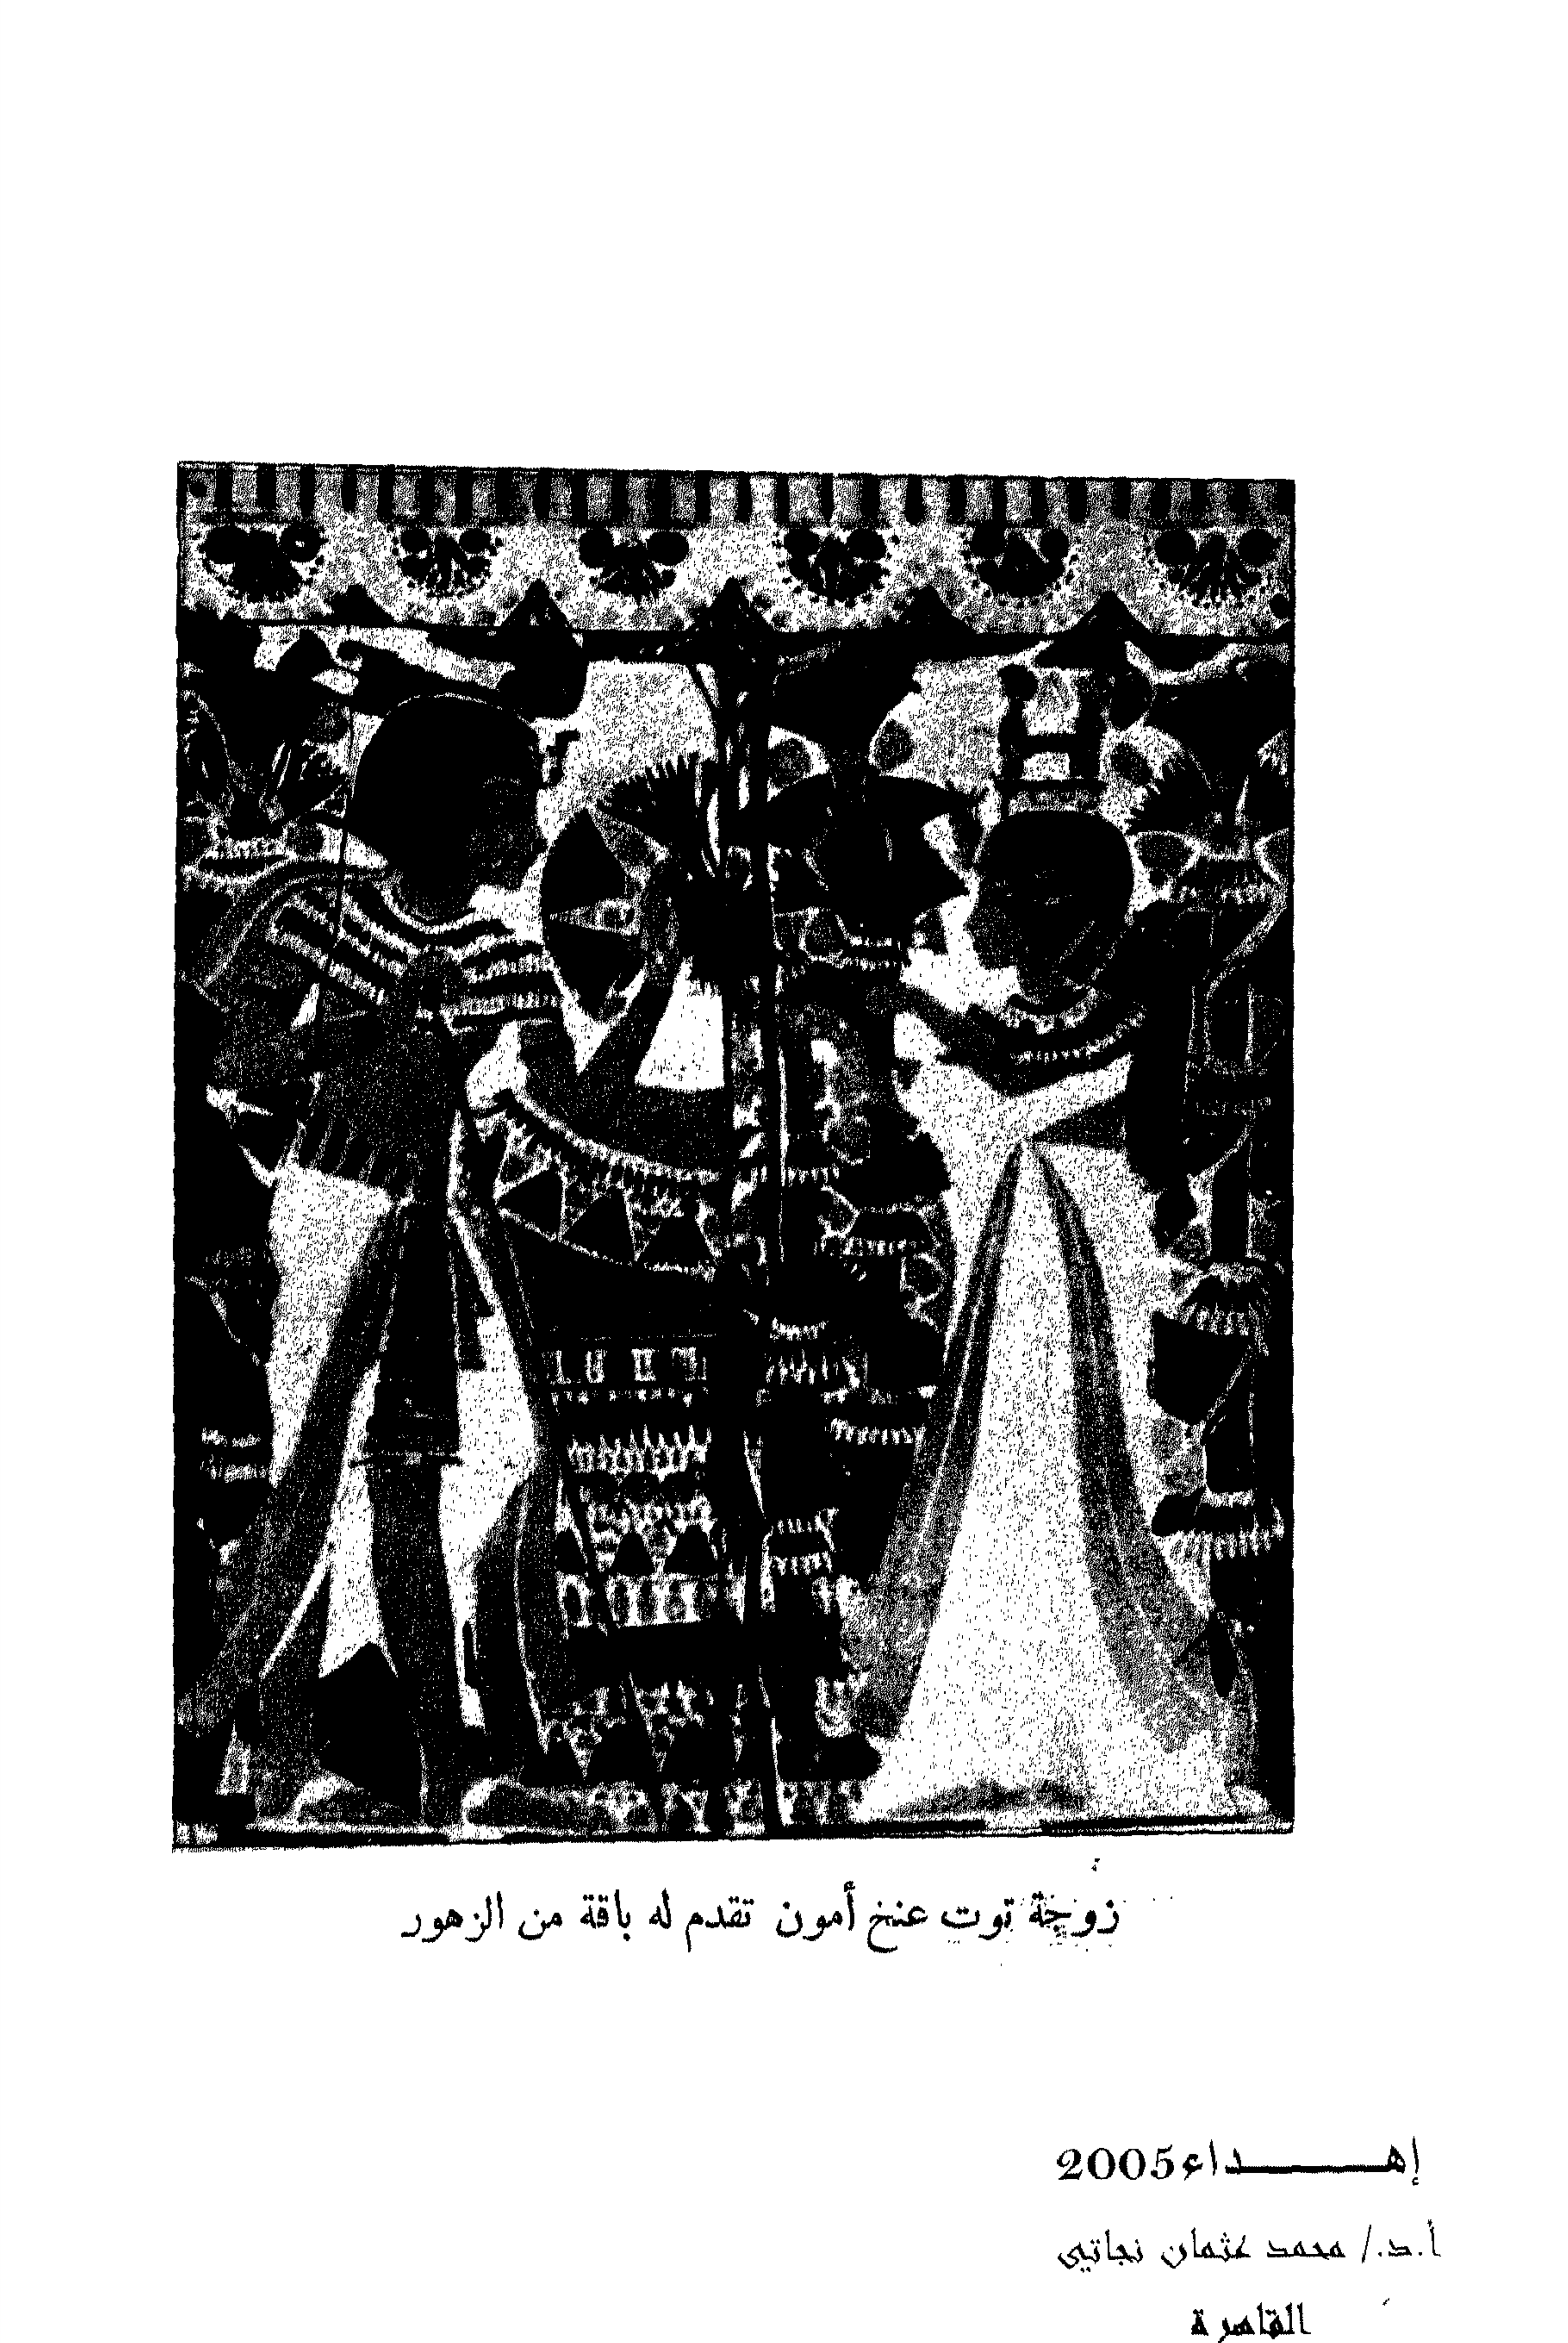 زوجة توت عنخ أمون تقدم له باقة من الزهور
إهـــــــداء 2005
أ.د./ محمد عثمان نجاتي
القاهرة